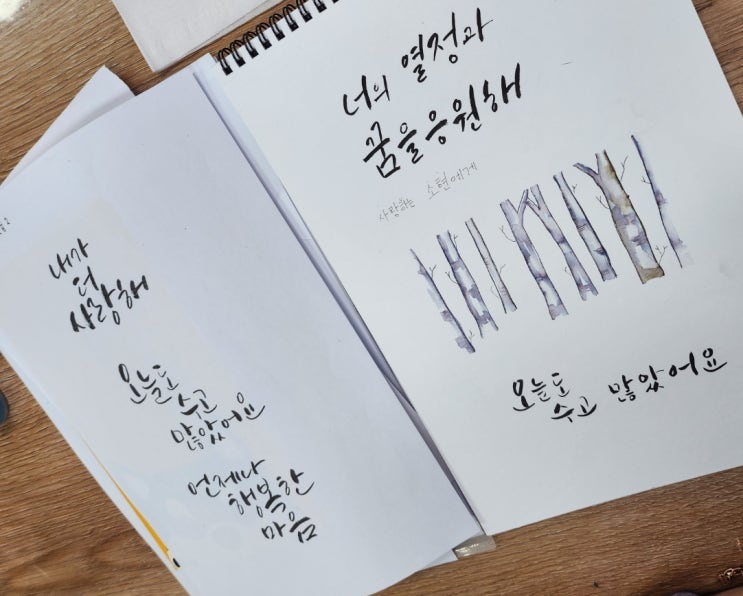 내가
더
사랑해
오늘도
수고
많았어요
언제나
행복한
마음
너의 열정과
꿈을 응원해
사랑하는 소현에게
오늘도
수고 많았어요